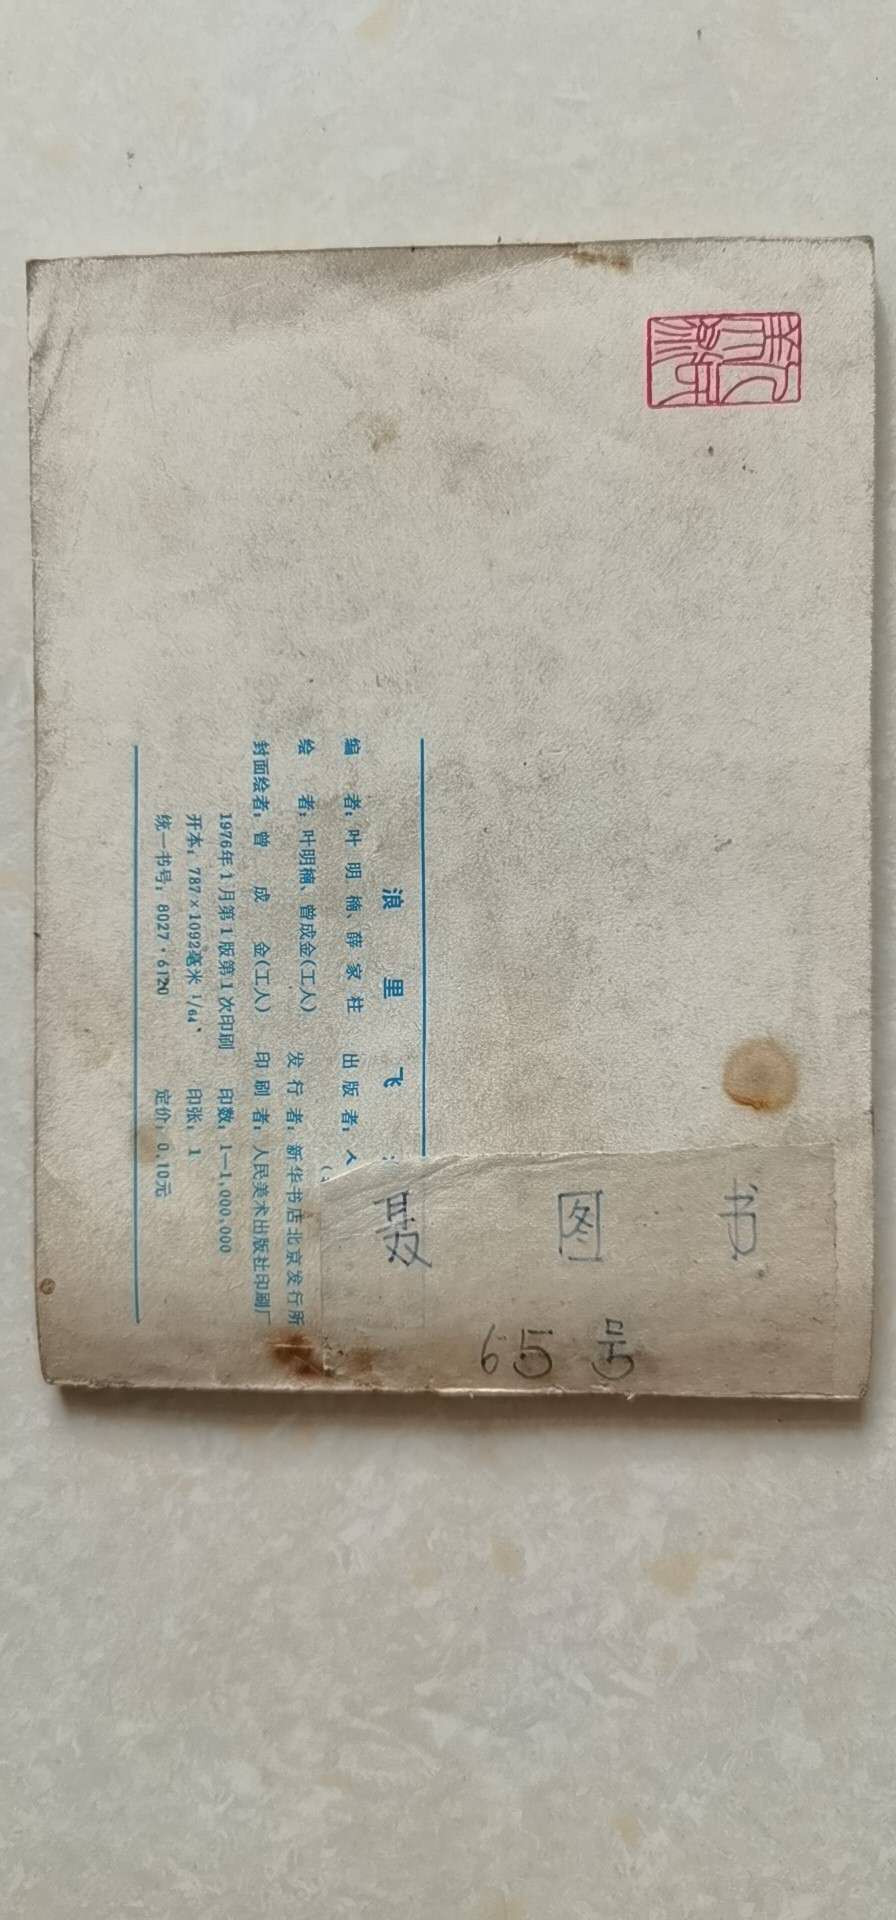 浪里飞
编者：叶明楠、薛家柱 出版者：人
绘者：叶明楠、曾成金(工人) 发行者：新华书店北京发行所
封面绘者：曾成金(工人) 印刷者：人民美术出版社印刷厂
1976年1月第1版第1次印刷 印数：1—1,000,000
开本：787×1092毫米 1/64 印张：1
统一书号：8027·6120 定价：0.10元
图书
65号